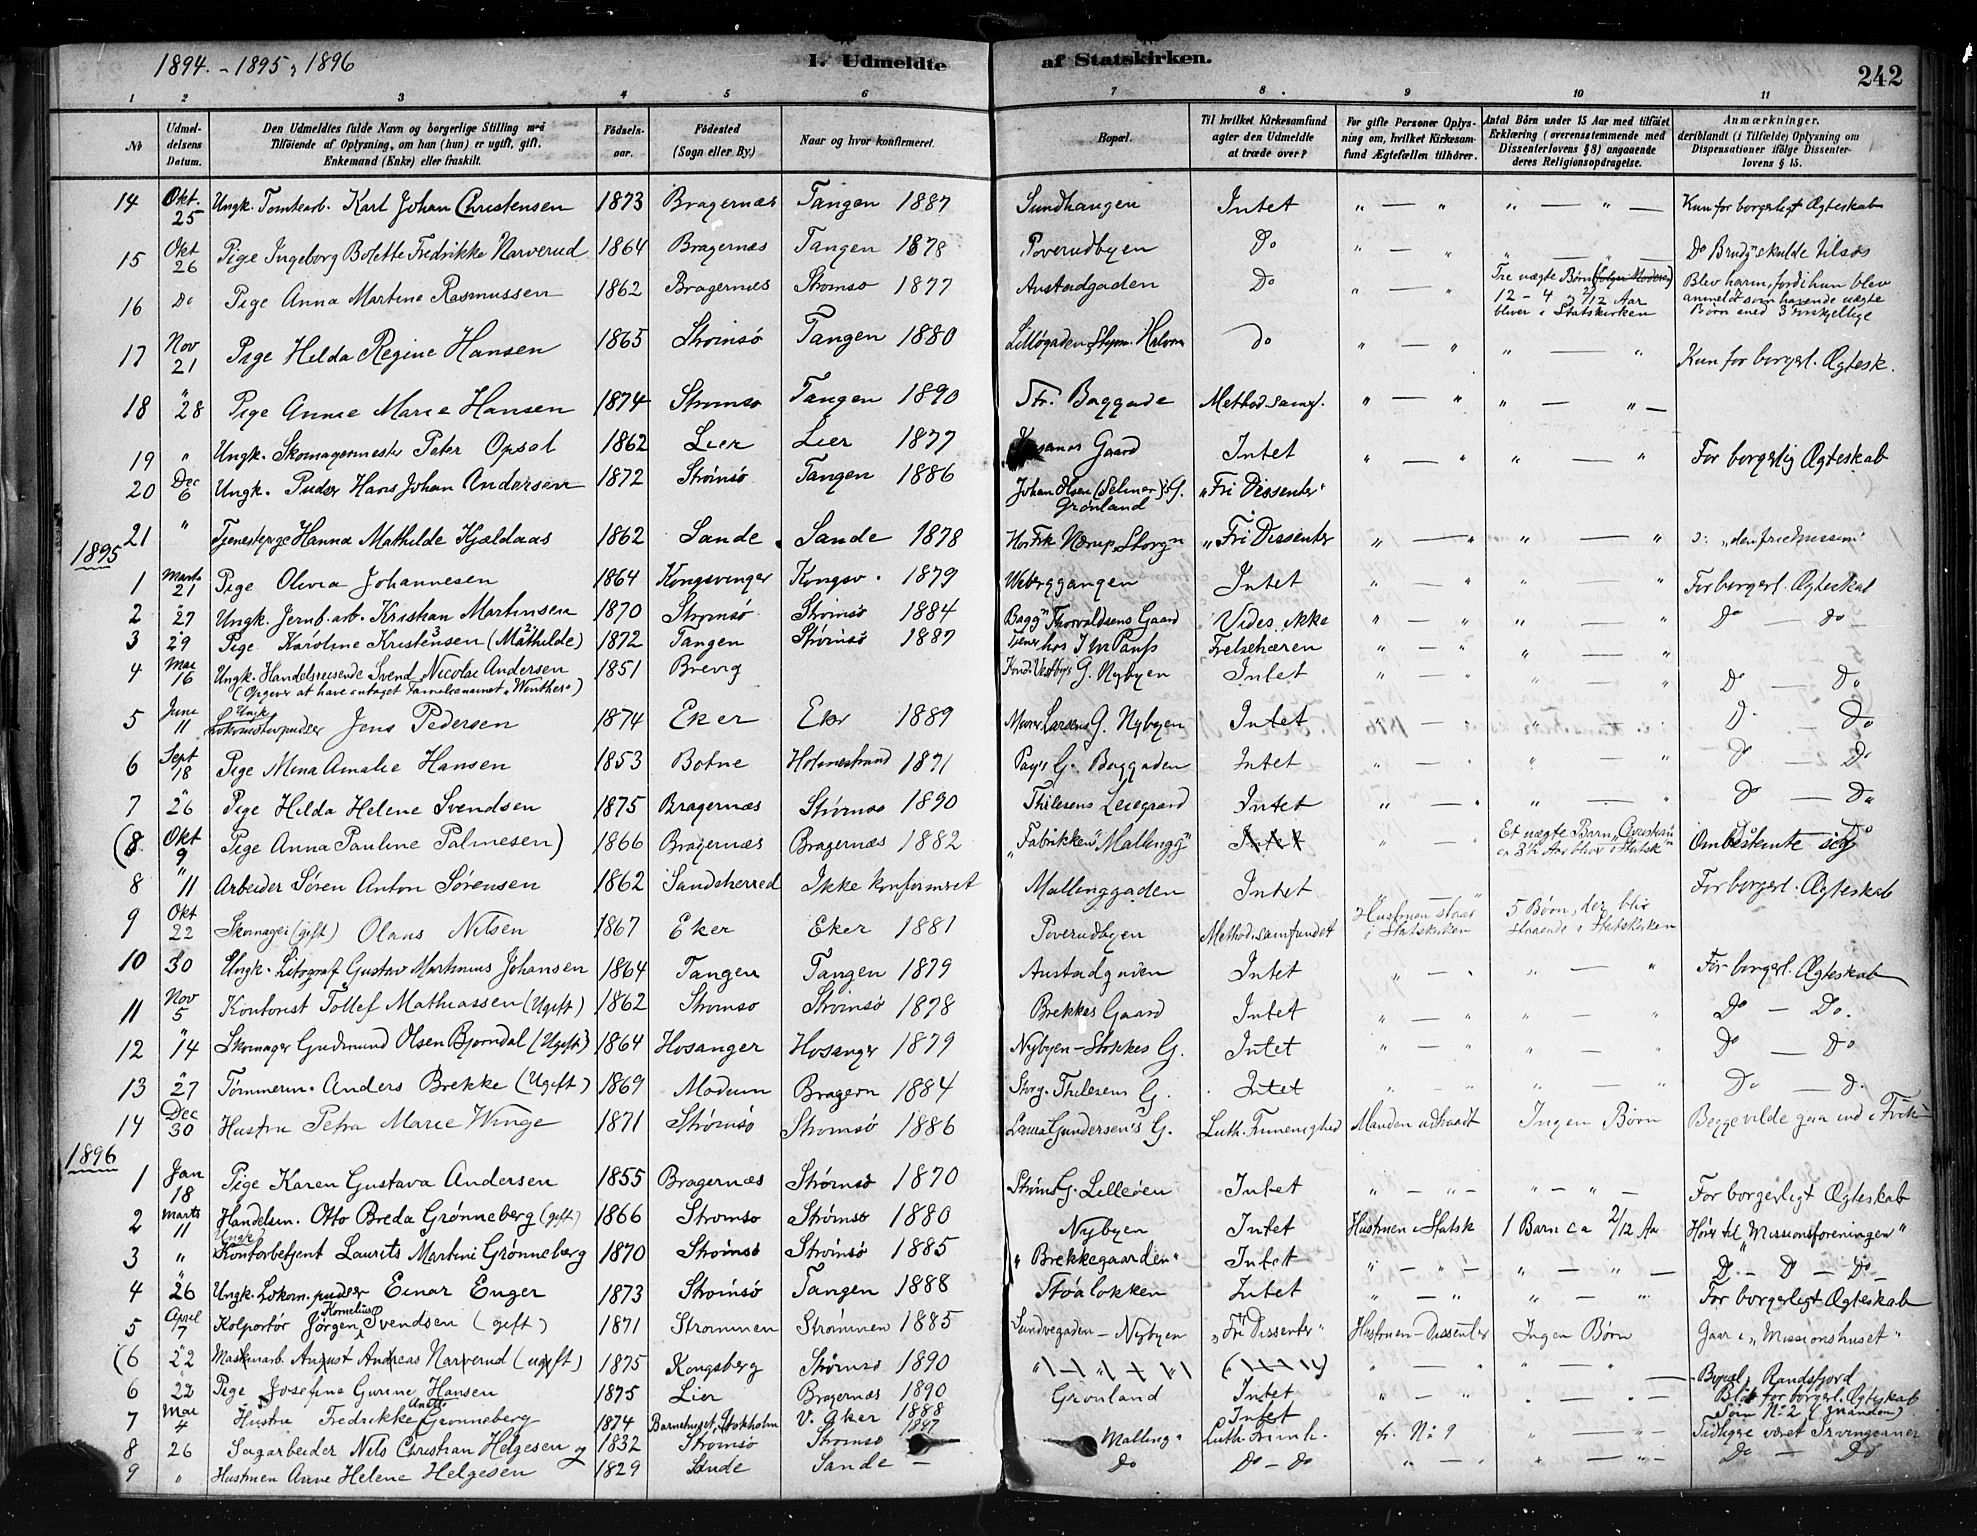 1894. - 1895, 1896
I. Udmeldte af Statskirken.
242
1 2 3 4 5 6 7 8. 9 10 11
No
Udmeldelsens Datum.
Den Udmeldtes fulde Navn og borgerlige Stilling med Tilføiende af Oplysning, om han (hun) er ugift, gift, Enkemand (Enke) eller fraskilt.
Fødselsaar.
Fødested (Sogn eller By.)
Naar og hvor konfirmeret.
Bopæl.
Til hvilket Kirkesamfund agter den Udmeldte at træde over?
For gifte Personer Oplysning om, hvilket Kirkesamfund Ægtefællen tilhører.
Antal Børn under 15 Aar med tilføiet Erklæring (overensstemmende med Dissenterlovens § 8) angaaende deres Religionsopdragelse.
Anmærkninger, deriblandt (i Tilfælde) Oplysning om Dispensationer ifølge Dissenterlovens § 15.
14 Okt. 25 Ungk. Tomtearb. Karl Johan Christensen 1873 Bragernæs Tangen 1887 Sundhaugen Intet " — " " — " — Kun for borgerligt Ægteskab
15 Okt 26 Pige Ingeborg Bolette Fredrikke Narverud 1864 Bragernæs Tangen 1878 Poverudbyen Do " — " " — " — Do Brud skulde tilsøs
16 Do Pige Anna Martine Rasmussen 1862 Bragernes Strømsø 1877 Austadgaden Do " — " Tre uægte Børn (følger Moderen) 12 - 4 og 2/12 Aar bliver i Statskirken Blev harm, fordi hun blev anmeldt som havende uægte Børn med 3 forskjellige
17 Nov 21 Pige Hilda Regine Hansen 1865 Strømsø Tangen 1880 Lilløgaden Do " — " " — " Kun for borgerl. Ægtesk.
18 " 28 Pige Annie Marie Hansen 1874 Strømsø Tangen 1890 Str. Baggade Method. samf. " — " " — " —
19 " Ungk. Skomagermester Peter Opsal 1862 Lier Lier 1877 Gaard Intet " — " " — " For borgerlig Ægteskab
20 Dec 6 Ungk. Pudser Hans Johan Andersen 1872 Strømsø Tangen 1886 Johan Olsen (Selmer)'s G. Grønland "Fri Dissenter"
21 " Tjenestepige Hanna Mathilde Kjældaas 1862 Sande Sande 1878 Hos Frk Nerup Storgn "Fri Dissenter " — " " — "
1895
1 Marts 21 Pige Olivia Johannesen 1864 Kongsvinger Kongsv. 1879 Weberggangen Intet " — " " — " For borgerl. Ægteskab
2 " 27 Ungk. Jernb. arb. Kristian Martinsen 1870 Strømsø Strømsø 1884 Bagg" Thorvaldsens Gaard Vides ikke " — " " — " Do — Do
3 " 29 Pige Karoline Kristensen (Mathilde) 1872 Tangen Strømsø 1887 Tjener hos Frelsehæren " — " " — "
4 Mai 16 Ungk. Handelsreisende Svend Nicolai Andersen 1851 Brevig G. Nybyen Intet " — " " — " Do — Do
(Opgiver at have antaget Familienavnet "Winther")
5 Juni 11 Ungk Lokomotivpudser Jens Pedersen 1874 Eker Eker 1889 Murer Larsens G. Nybyen Intet " — " Do Do
6 Sept 18 Pige Mina Amalie Hansen 1853 Botne Holmestrand 1871 G. Baggaden Intet " — " " — " Do — Do
7 " 26 Pige Hilda Helene Svendsen 1875 Bragernæs Strømsø 1890 Thilesens Leiegaard Intet " — " " — " Do — Do
(8. Okt 9 Pige Anna Pauline Palmesen) 1866 Bragernæs Bragernæs 1882 "Fabrikken" Mallingg" Intet " — " Et uægte Barn er 3½ Aar bliver i Statsk Ombestemte sig
8 " 11 Arbeider Søren Anton Sørensen 1862 Sandeherred Ikke konfirmeret Mallinggaden Intet For borgerl. Ægteskab
9 Okt 22 Skomager (gift) Olaus Nilsen 1867 Eker Eker 1881 Poverudbyen Method. samfundet Hustruen staar i Statskirken 5 Børn, der bliv staaende i Statskirken
10 30 Ungk. Litograf Gustav Martinius Johansen 1864 Tangen Tangen 1879 Austadgaden Intet " — " " — " For borgerl. Ægteskab
11 Nov 5 Kontorist Tollef Mathiassen (Ugift) 1862 Strømsø Strømsø 1878 Brekkes Gaard Intet " — " " — " Do — Do.
12 " 14 Skomager Gudmund Olsen Bjørndal (Ugift) 1864 Hosanger Hosanger 1879 Nybyen - Stokkes G. Intet " — " " — " Do — Do
13 " 27 Tømmerm. Anders Brekke (Ugift) 1869 Modum Bragern 1884 Storg. Thilesens G. Intet " — " " — " Do — Do
14 Dec 30 Hustru Petra Marie Winge 1871 Strømsø Strømsø 1886 Laura Gundersen's G. Luth. Frimenighed Manden udtraadt Ingen Børn Begge vilde gaa ind i Frik
1896
1 Jan 18 Pige Karen Gustava Andersen 1855 Bragernæs Strømsø 1870 Strøms G. Lilleøen Intet " — " — " — " — For borgerligt Ægteskab
2 Marts 11 Handelsm. Otto Breda Grønneberg (gift) 1866 Strømsø Strømsø 1880 Nybyen Intet Hustruen i Statsk 1 Barn ca 2/12 Aar Hører til "Missionsforeningen"
3 " Ungk Kontorbetjent Laurits Martini Grønneberg 1870 Strømsø Strømsø 1885 "Brekkegaarden" Intet " — " — " — " — Do — Do — Do
4 " 26 Ungk. Lokom. pudser Einar Enger 1873 Strømsø Tangen 1888 Støaløkken Intet " — " " — " For borgerligt Ægteskab
5 April 7 Kolportør Jørgen Kornelius Svendsen (gift) 1871 Strømmen Strømmen 1885 Sundvegaden - Nybyen "Fri Dissenter" Hustruen - Dissenter Ingen Børn Gaar i "Missionshuset"
(6 " 22 Maskinarb. August Andreas Narverud (ugift) 1875 Kongsberg Strømsø 1890 " — " " — "
6 " 22 Pige Josefine Gurine Hansen 1875 Lier Bragernæs 1890 Grønland Intet " — " " — " Bopæl, Randsfjord Blot for borgerl. Ægteskab
7 Mai 4 Hustru Fredrikke Anette Grønneberg 1874 Barnehuset, Stokholm V. Aker 1888 Intet Som No 2 (Manden)
8 26 Sagarbeider Nils Christian Helgesen og 1832 Strømsø Strømsø 1847 Malling. Luth. Frimh. cfr. No 9 " — " Tidligere været Irvingianer
9 " Hustruen Anne Helene Helgesen 1829 Sande Sande — Do Do - Do " — " " — " Do — Do